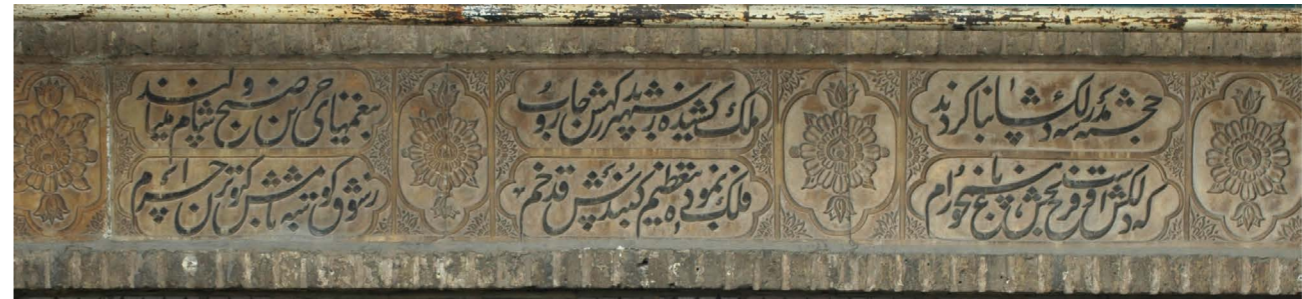 خجسته مدرسه دلگشا بنا کردند
که دلکش است و فرح بخش همچو باغ ارم
ملک کشیده ز شهپر بدرگهش جاروب
فلک نموده بتعظیم گنبدش قد خم
بنغمهای حزین صبح و شام مینالند
ز شوق کبوتران حرم